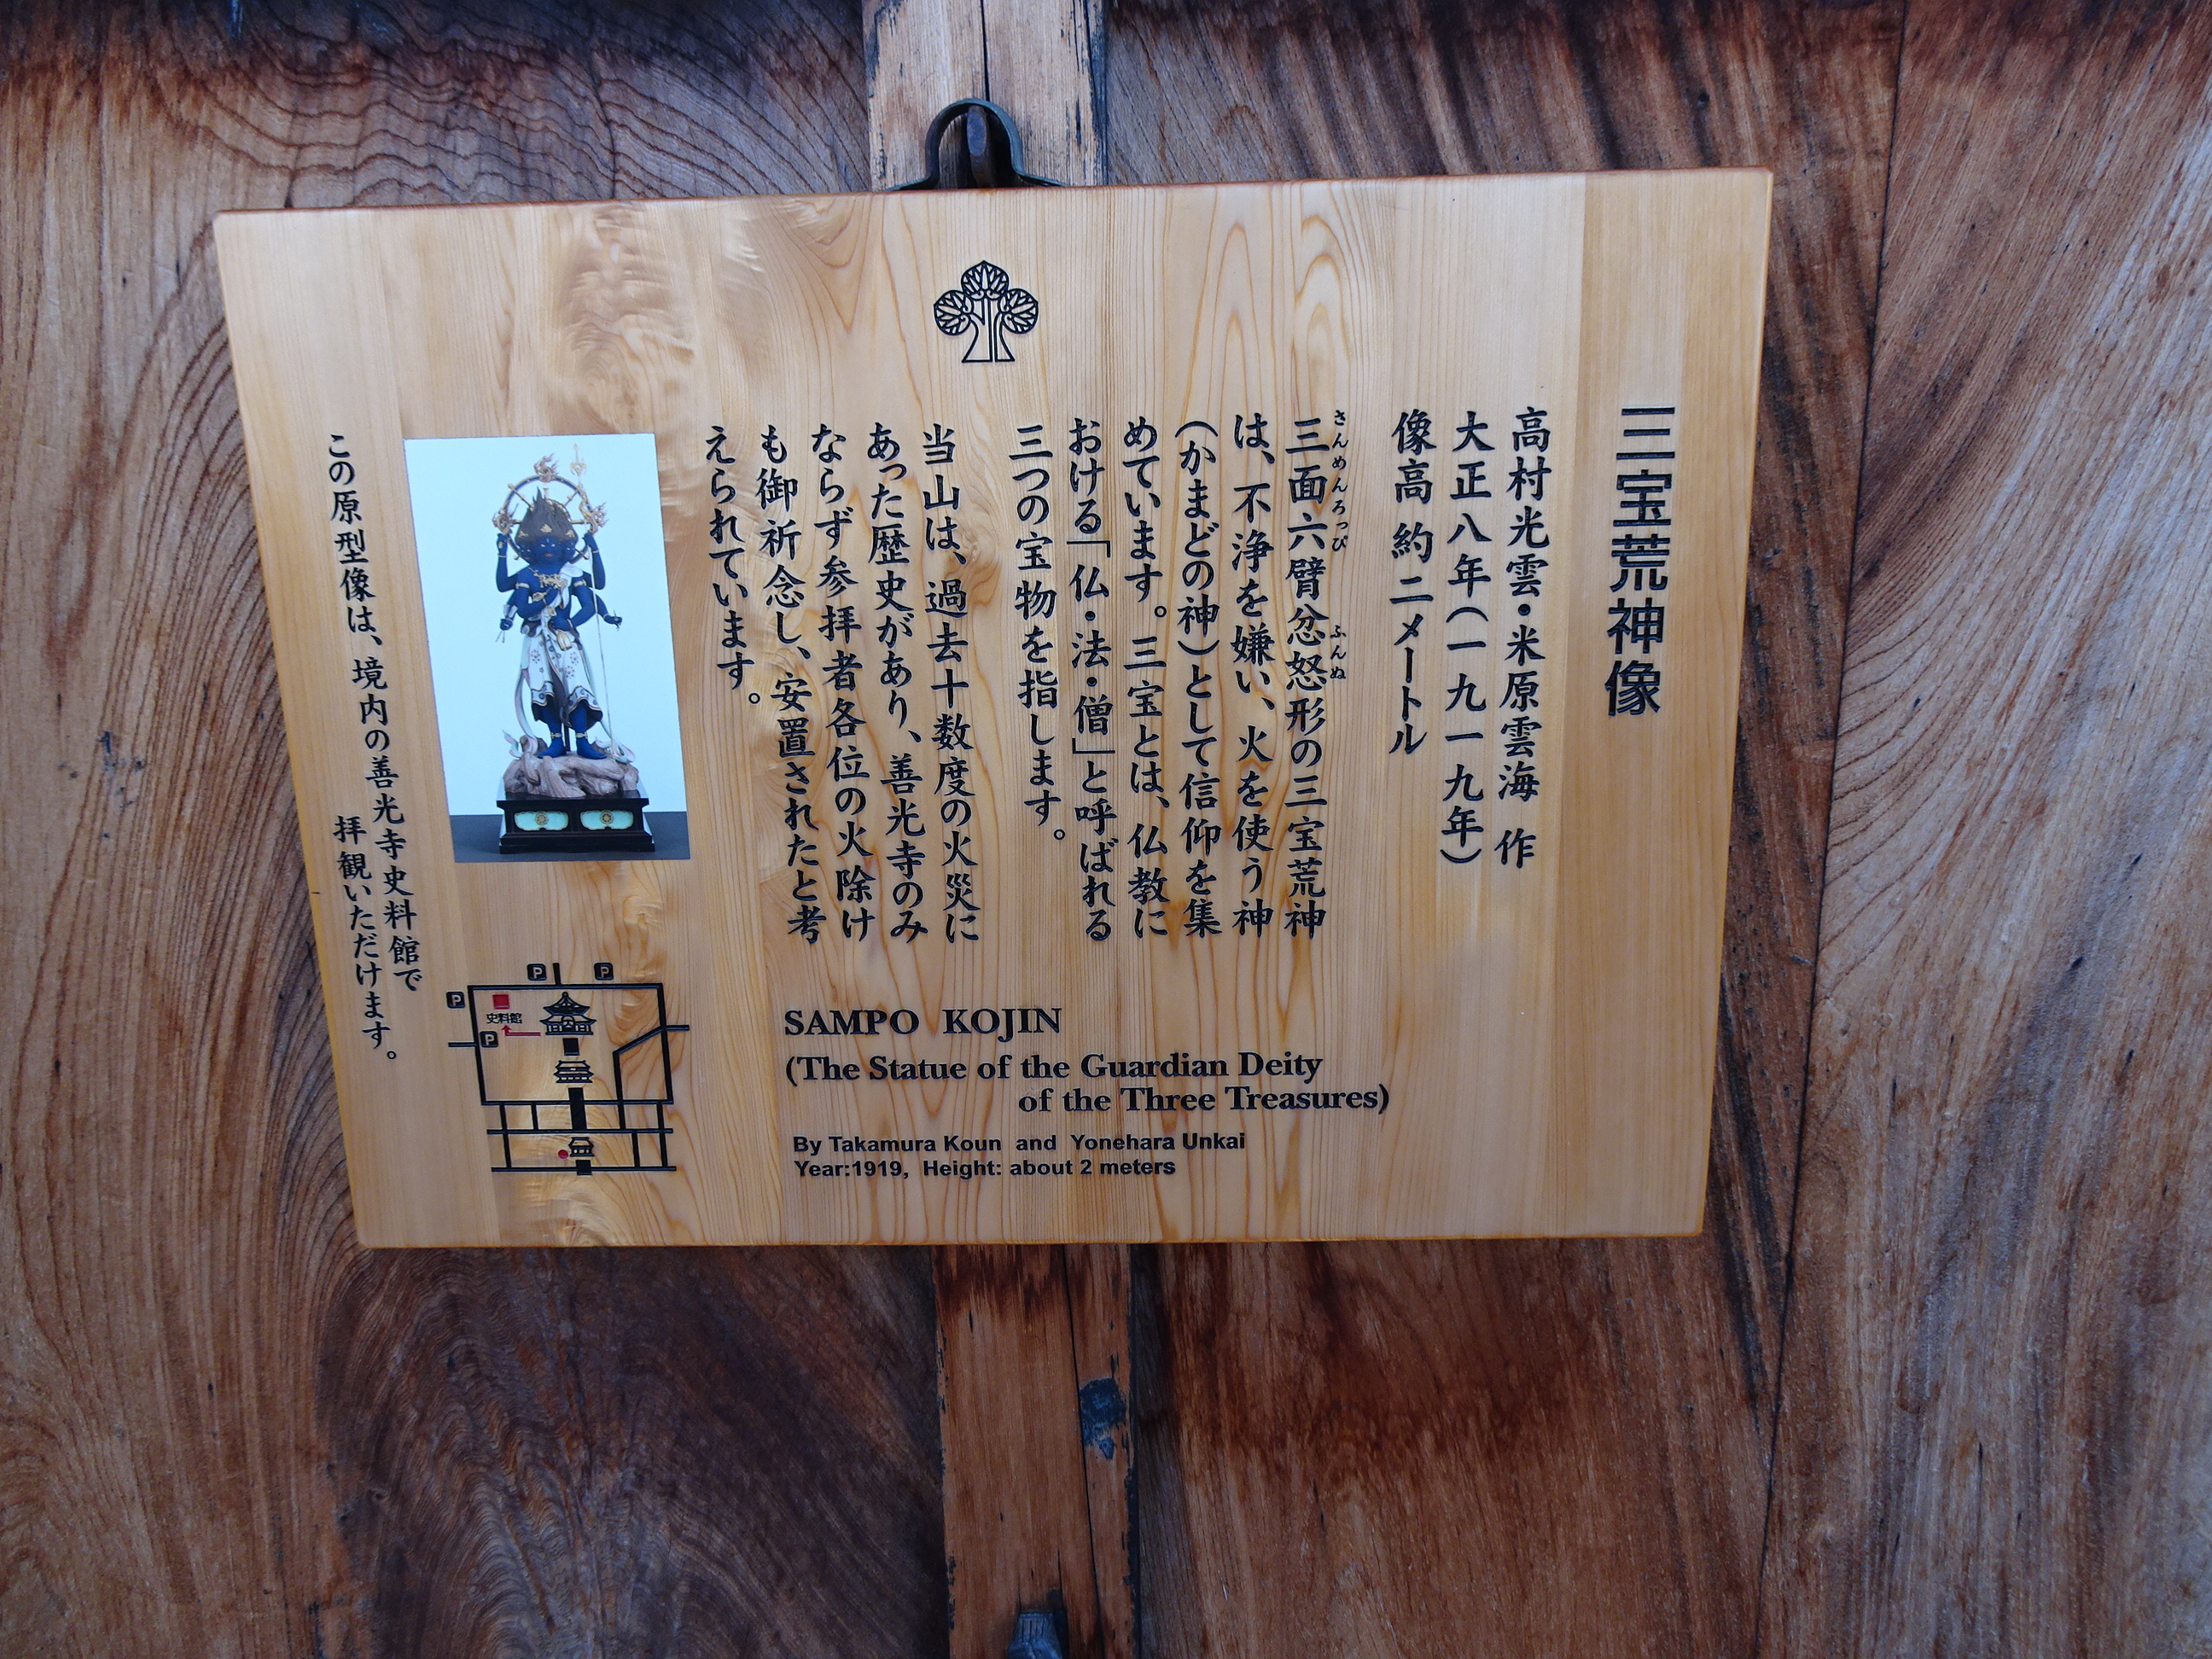 三宝荒神像
高村光雲・米原雲海 作
大正八年(一九一九年)
像高 約二メートル
さんめんろっぴ ふんぬ
三面六臂忿怒形の三宝荒神
は、不浄を嫌い、火を使う神
(かまどの神)として信仰を集
めています。三宝とは、仏教に
おける「仏・法・僧」と呼ばれる
三つの宝物を指します。
当山は、過去十数度の火災に
あった歴史があり、善光寺のみ
ならず参拝者各位の火除け
も御祈念し、安置されたと考
えられています。
この原型像は、境内の善光寺史料館で
拝観いただけます。
P
P
P
史料館
P
SAMPO KOJIN
(The Statue of the Guardian Deity
of the Three Treasures)
By Takamura Koun and Yonehara Unkai
Year:1919, Height: about 2 meters